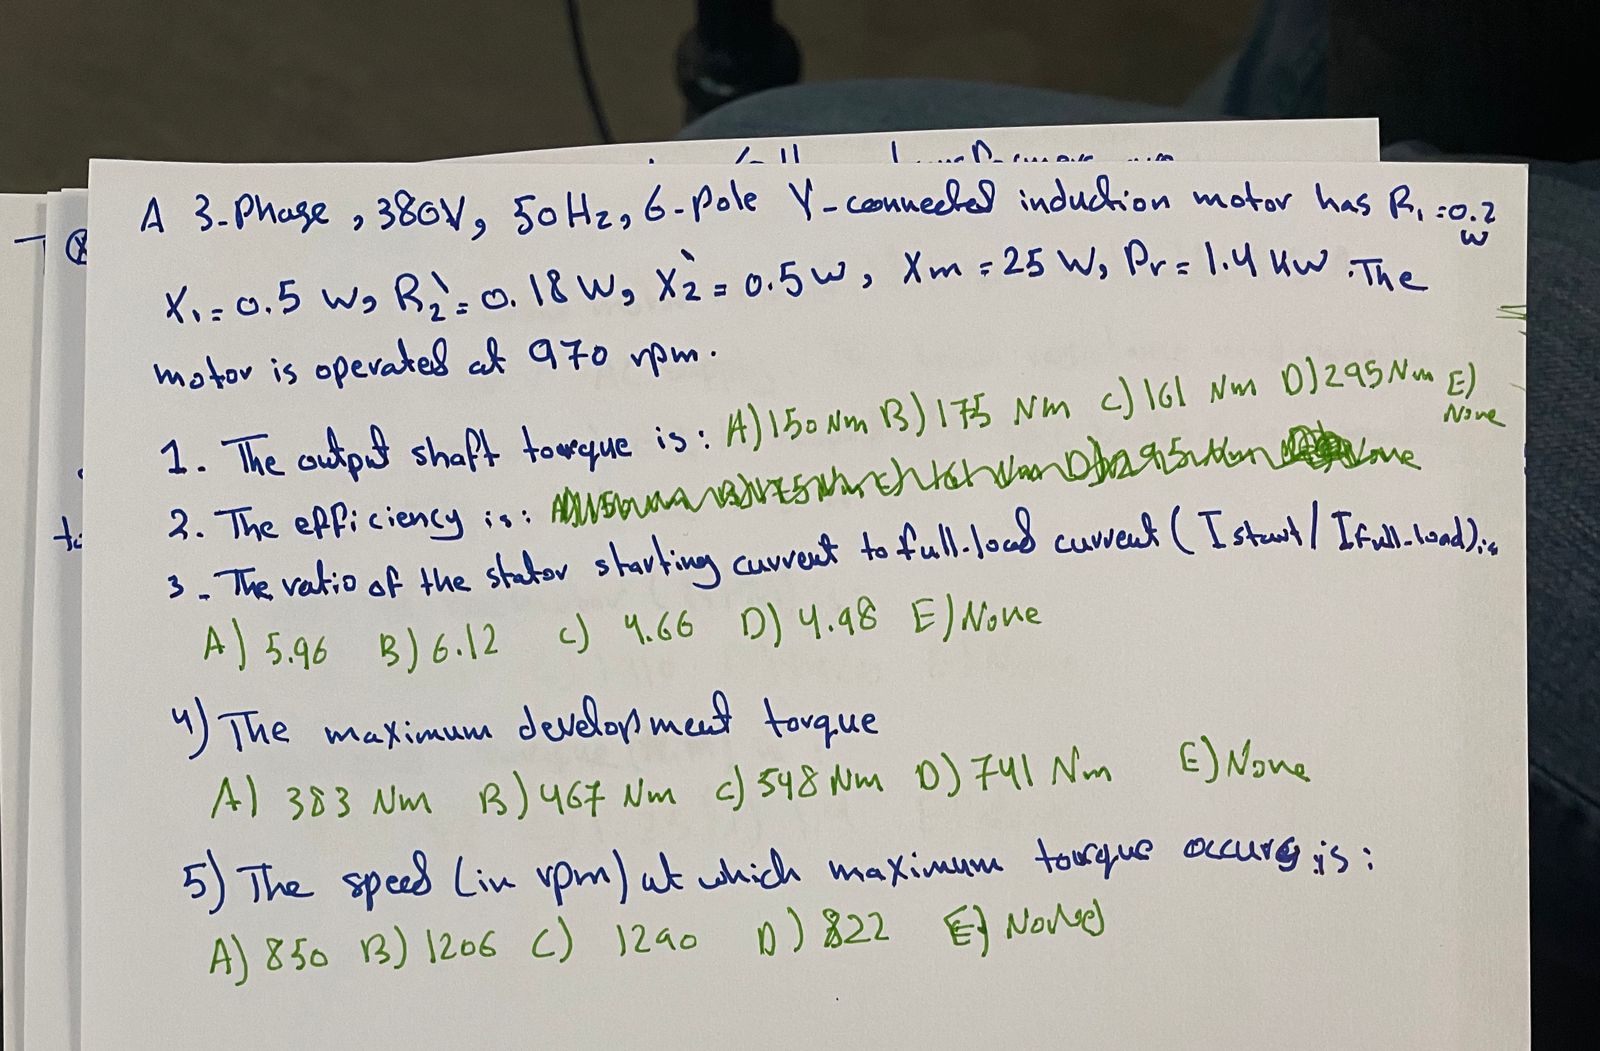 A 3-Phase, 380V, 50Hz, 6-Pole Y-connected induction motor has R₁=0.2 W
X₁=0.5 W, R₂'=0.18W, X₂'=0.5w, Xm=25 W, Pr=1.4 kW. The
motor is operated at 970 rpm.
1. The output shaft torque is: A) 150 Nm B) 175 Nm C) 161 Nm D) 295 Nm E) None
2. The efficiency is:
3. The ratio of the stator starting current to full-load current (I start / I full-load) is
A) 5.96 B) 6.12 C) 4.66 D) 4.98 E) None
4) The maximum development torque
A) 383 Nm B) 467 Nm C) 548 Nm D) 741 Nm E) None
5) The speed (in rpm) at which maximum torque occurs is:
A) 850 B) 1206 C) 1290 D) 822 E) None